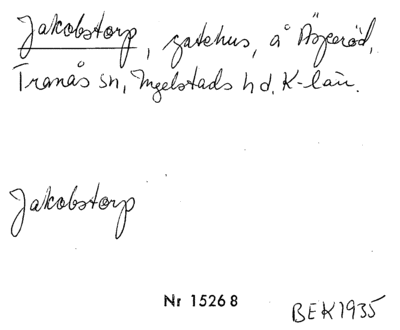 Jakobstorp, gatehus, å Äsperöd,
Tranås sn, Ingelstads hd. K-län.
Jakobstorp
Nr 15268
BEK1935